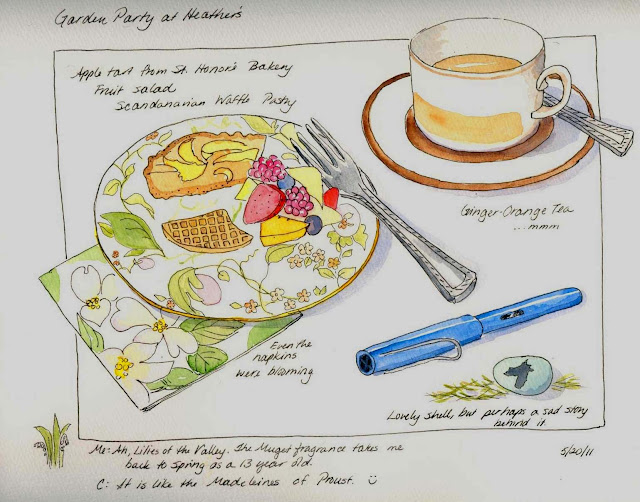 Garden Party at Heather's
Apple tart from St. Honor's Bakery
Fruit salad
Scandanarian Waffle Pastry
Ginger-Orange Tea
...mmm
Even the
napkins
were blooming
Lovely shell, but perhaps a sad story
behind it
Me: Ah, Lilies of the Valley. The Muget fragrance takes me
back to Spring as a 13 year old.
C: It is like the Madeleines of Proust.
5/20/11